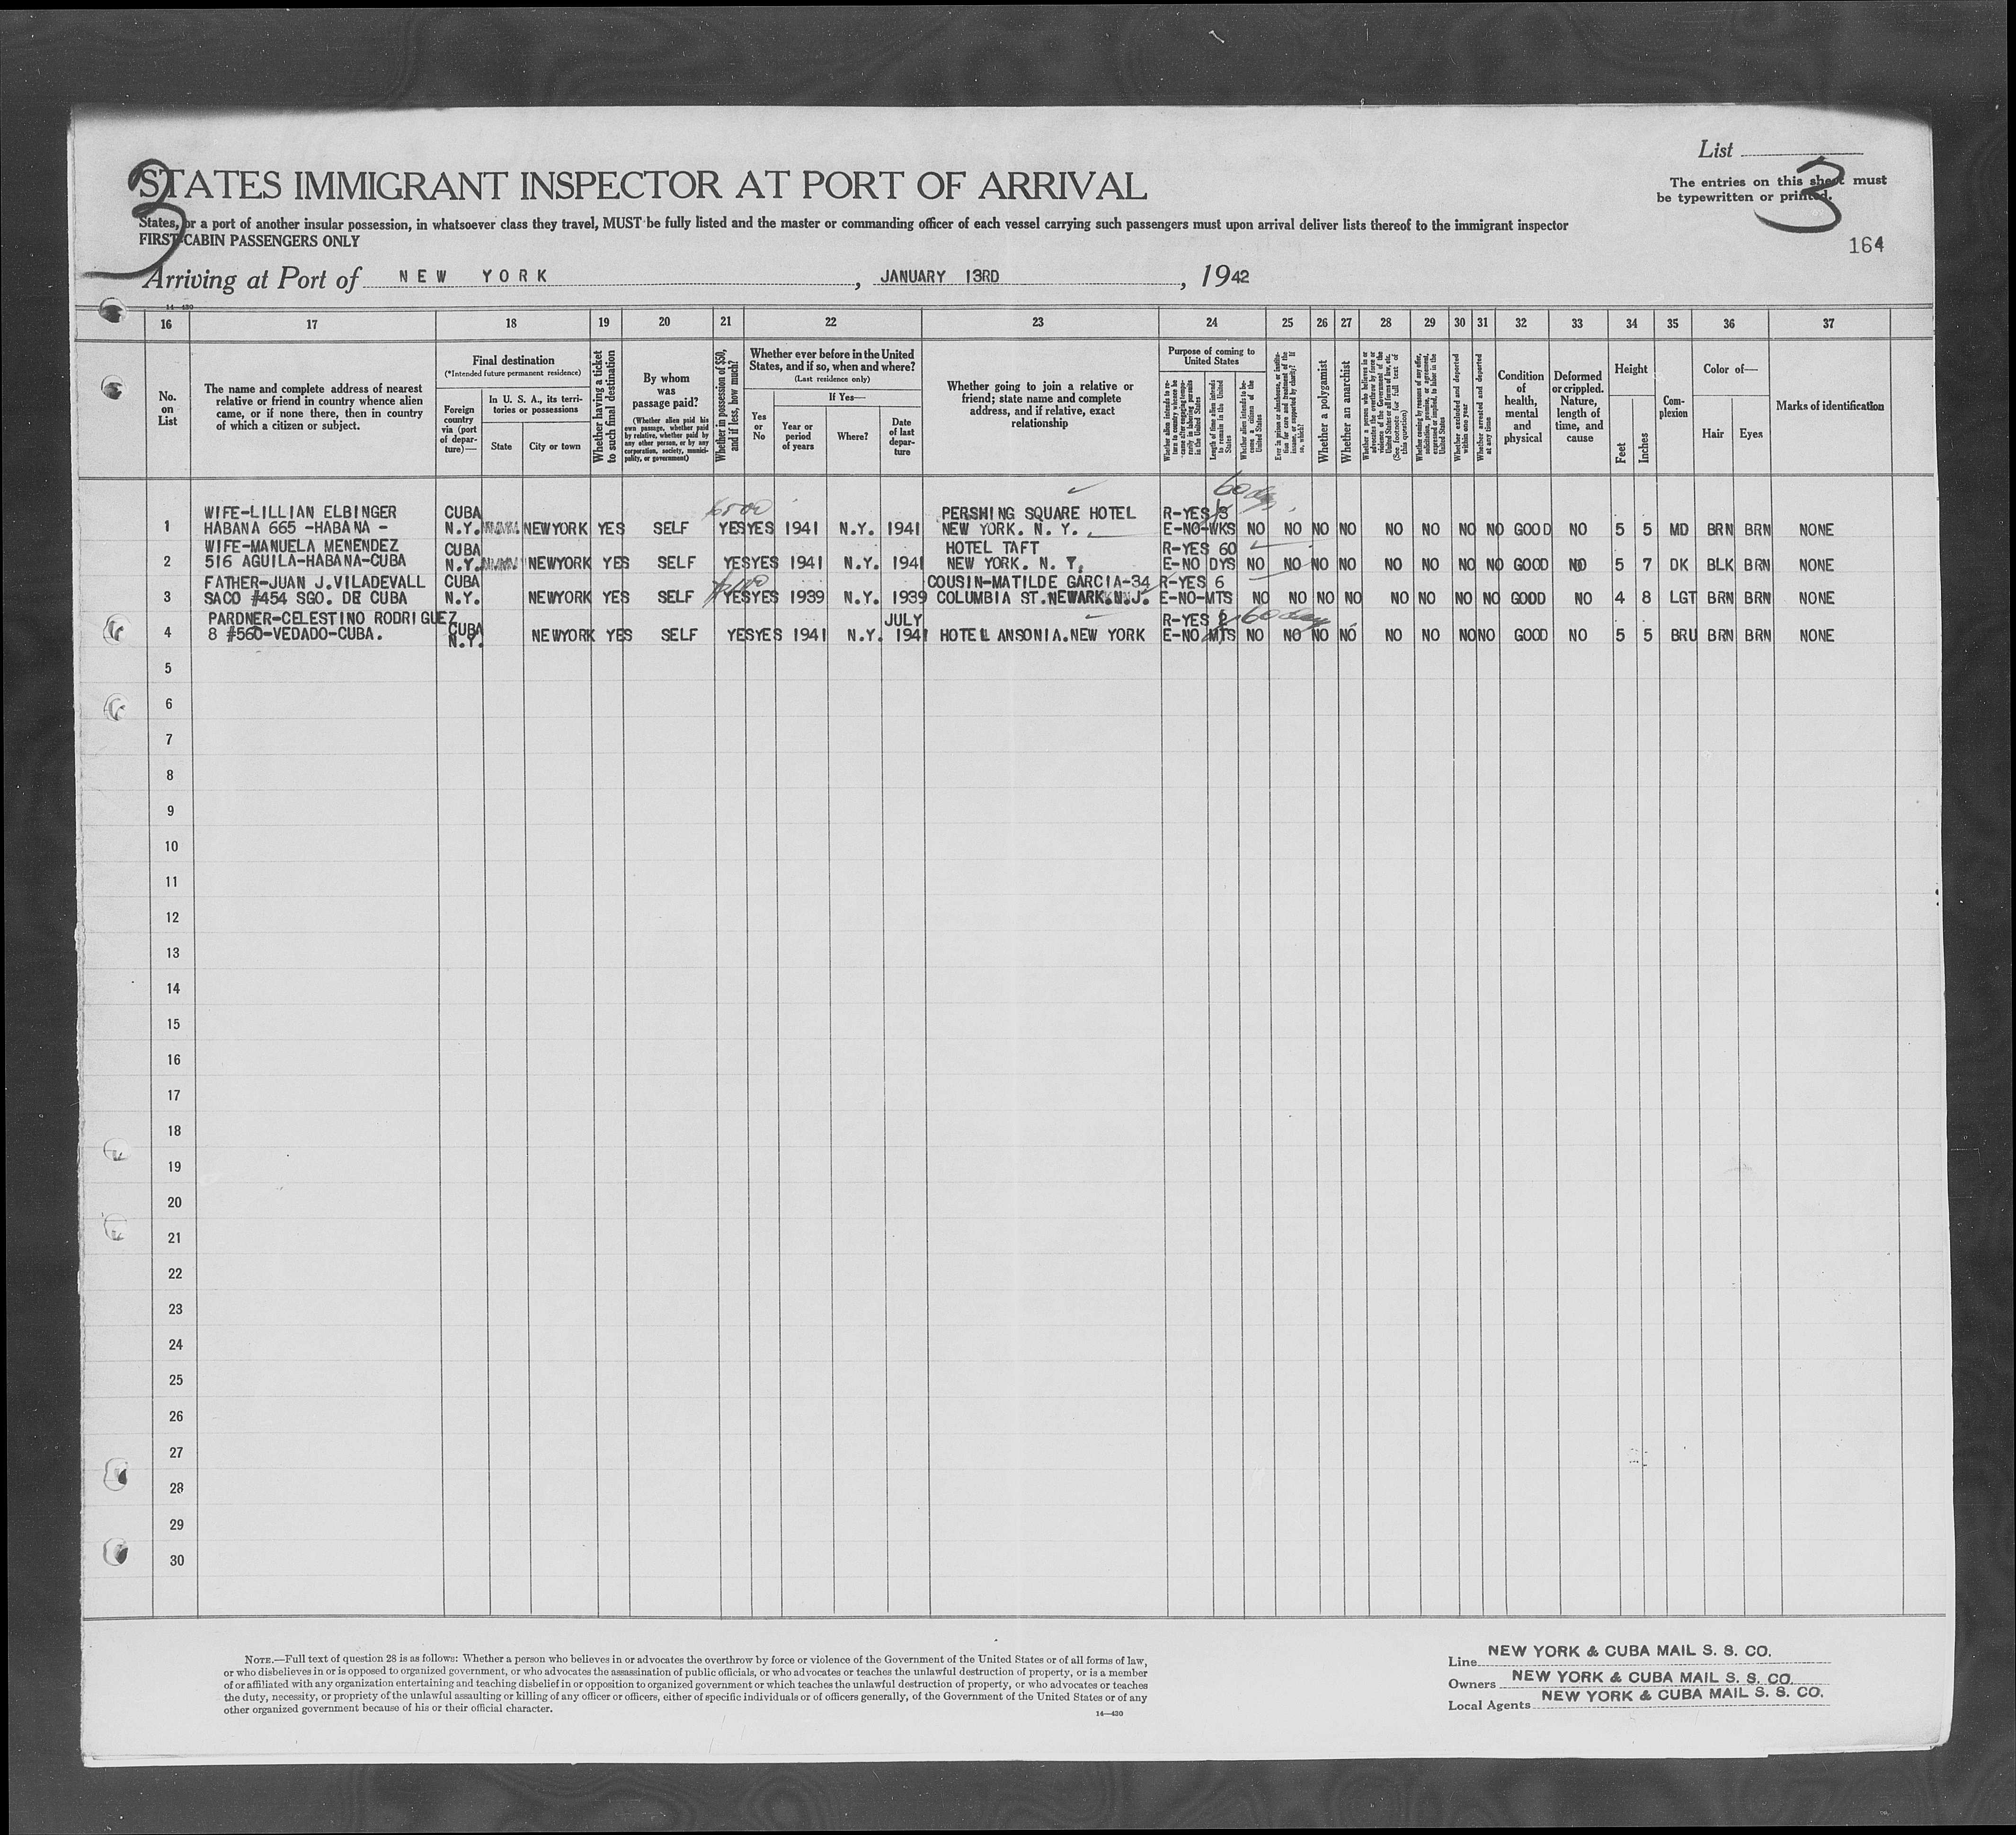 List
3
3
STATES IMMIGRANT INSPECTOR AT PORT OF ARRIVAL
The entries on this sheet must
be typewritten or printed.
States, or a port of another insular possession, in whatsoever class they travel, MUST be fully listed and the master or commanding officer of each vessel carrying such passengers must upon arrival deliver lists thereof to the immigrant inspector
FIRST-CABIN PASSENGERS ONLY
164
Arriving at Port of NEW YORK, JANUARY 13RD, 1942
14—430
16 17 18 19 20 21 22 23 24 25 26 27 28 29 30 31 32 33 34 35 36 37
No. on List
The name and complete address of nearest relative or friend in country whence alien came, or if none there, then in country of which a citizen or subject.
Final destination
(*Intended future permanent residence)
Foreign country via (port of departure)—
In U. S. A., its territories or possessions
State
City or town
Whether having a ticket to such final destination
By whom was passage paid?
(Whether alien paid his own passage, whether paid by relative, whether paid by any other person, or by any corporation, society, municipality, or government)
Whether in possession of $50, and if less, how much?
Whether ever before in the United States, and if so, when and where?
(Last residence only)
Yes or No
If Yes—
Year or period of years
Where?
Date of last departure
Whether going to join a relative or friend; state name and complete address, and if relative, exact relationship
Purpose of coming to United States
Whether alien intends to return to country whence he came after engaging temporarily in laboring pursuits in the United States
Length of time alien intends to remain in the United States
Whether alien intends to become a citizen of the United States
Ever in prison or almshouse, or institution for care and treatment of the insane, or supported by charity? If so, which?
Whether a polygamist
Whether an anarchist
Whether a person who believes in or advocates the overthrow by force or violence of the Government of the United States or all forms of law, etc. (See footnote for full text of this question)
Whether coming by reason of any offer, solicitation, promise, or agreement, expressed or implied, to labor in the United States
Whether excluded and deported within one year
Whether arrested and deported at any time
Condition of health, mental and physical
Deformed or crippled. Nature, length of time, and cause
Height
Feet
Inches
Complexion
Color of—
Hair
Eyes
Marks of identification
60 days
WIFE-LILLIAN ELBINGER CUBA PERSHING SQUARE HOTEL R-YES 3
1 HABANA 665 -HABANA - N.Y. NEWYORK YES SELF YES YES 1941 N.Y. 1941 NEW YORK. N. Y. E-NO-WKS NO NO NO NO NO NO NO NO GOOD NO 5 5 MD BRN BRN NONE
WIFE-MANUELA MENENDEZ CUBA HOTEL TAFT R-YES 60
2 516 AGUILA-HABANA-CUBA N.Y. NEWYORK YES SELF YES YES 1941 N.Y. 1941 NEW YORK. N. Y. E-NO DYS NO NO NO NO NO NO NO NO GOOD NO 5 7 DK BLK BRN NONE
FATHER-JUAN J.VILADEVALL CUBA COUSIN-MATILDE GARCIA-34 R-YES 6
3 SACO #454 SGO. DE CUBA N.Y. NEWYORK YES SELF YES YES 1939 N.Y. 1939 COLUMBIA ST.NEWARK.N.J. E-NO-MTS NO NO NO NO NO NO NO NO GOOD NO 4 8 LGT BRN BRN NONE
PARDNER-CELESTINO RODRIGUEZ CUBA JULY R-YES 60 days
4 8 #560-VEDADO-CUBA. N.Y. NEWYORK YES SELF YES YES 1941 N.Y. 1941 HOTEL ANSONIA.NEW YORK E-NO MTS NO NO NO NO NO NO NO NO GOOD NO 5 5 BRU BRN BRN NONE
5
6
7
8
9
10
11
12
13
14
15
16
17
18
19
20
21
22
23
24
25
26
27
28
29
30
NOTE.—Full text of question 28 is as follows: Whether a person who believes in or advocates the overthrow by force or violence of the Government of the United States or of all forms of law,
or who disbelieves in or is opposed to organized government, or who advocates the assassination of public officials, or who advocates or teaches the unlawful destruction of property, or is a member
of or affiliated with any organization entertaining and teaching disbelief in or opposition to organized government or which teaches the unlawful destruction of property, or who advocates or teaches
the duty, necessity, or propriety of the unlawful assaulting or killing of any officer or officers, either of specific individuals or of officers generally, of the Government of the United States or of any
other organized government because of his or their official character.
14—430
Line NEW YORK & CUBA MAIL S. S. CO.
Owners NEW YORK & CUBA MAIL S. S. CO.
Local Agents NEW YORK & CUBA MAIL S. S. CO.